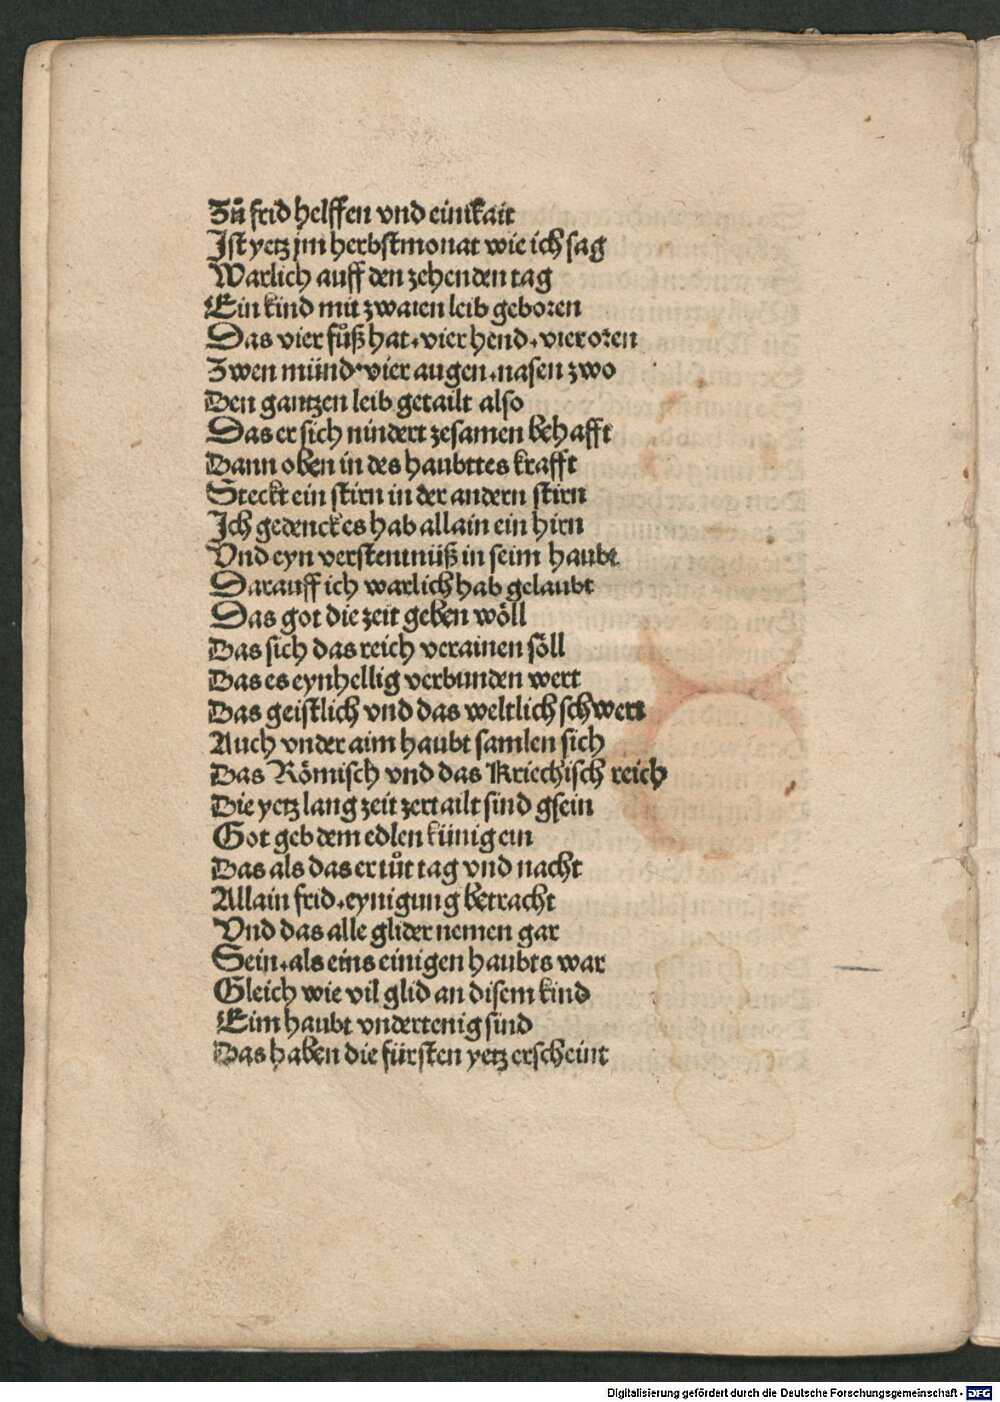 Zů frid helffen vnd einikait
Ist yetz jm herbstmonat wie ich sag
Warlich auff den zehenden tag
Ein kind mit zwaien leib geboren
Das vier fůß hat. vier hend. vier oren
Zwen münd. vier augen. nasen zwo
Den gantzen leib getailt also
Das er sich nindert zesamen behafft
Dann oben in des haubttes krafft
Steckt ein stirn in der andern stirn
Ich gedenck es hab allain ein hirn
Vnd eyn verstentnüß in seim haubt
Darauff ich warlich hab gelaubt
Das got die zeit geben wöll
Das sich das reich verainen söll
Das es eynhellig verbunden wert
Das geistlich vnd das weltlich schwert
Auch vnder aim haubt samlen sich
Das Römisch vnd das Kriechisch reich
Die yetz lang zeit zertailt sind gsein
Got geb dem edlen künig ein
Das als das er tůt tag vnd nacht
Allain frid. eynigung betracht
Vnd das alle glider nemen gar
Sein. als eins einigen haubts war
Gleich wie vil glid an disem kind
Eim haubt vndertenig sind
Das haben die fürsten yetz erscheint
Digitalisierung gefördert durch die Deutsche Forschungsgemeinschaft - DFG